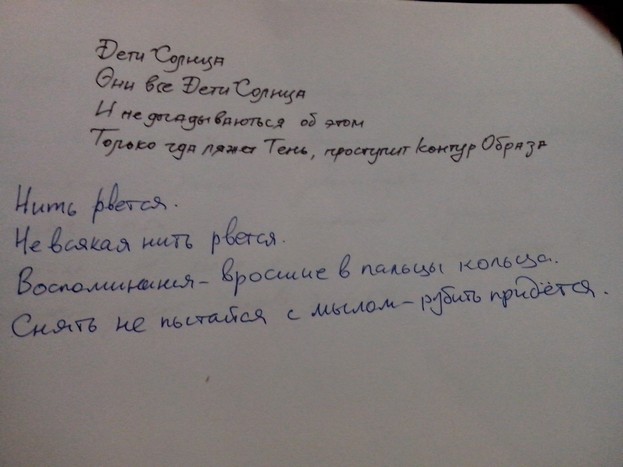 Дети Солнца
Они все Дети Солнца
И не догадываються об этом
Только гда ляжет Тень, проступит контур Образа
Нить рвется.
Не всякая нить рвется.
Воспоминания – вросшие в пальцы кольца.
Снять не пытайся с мылом – рубить придётся.